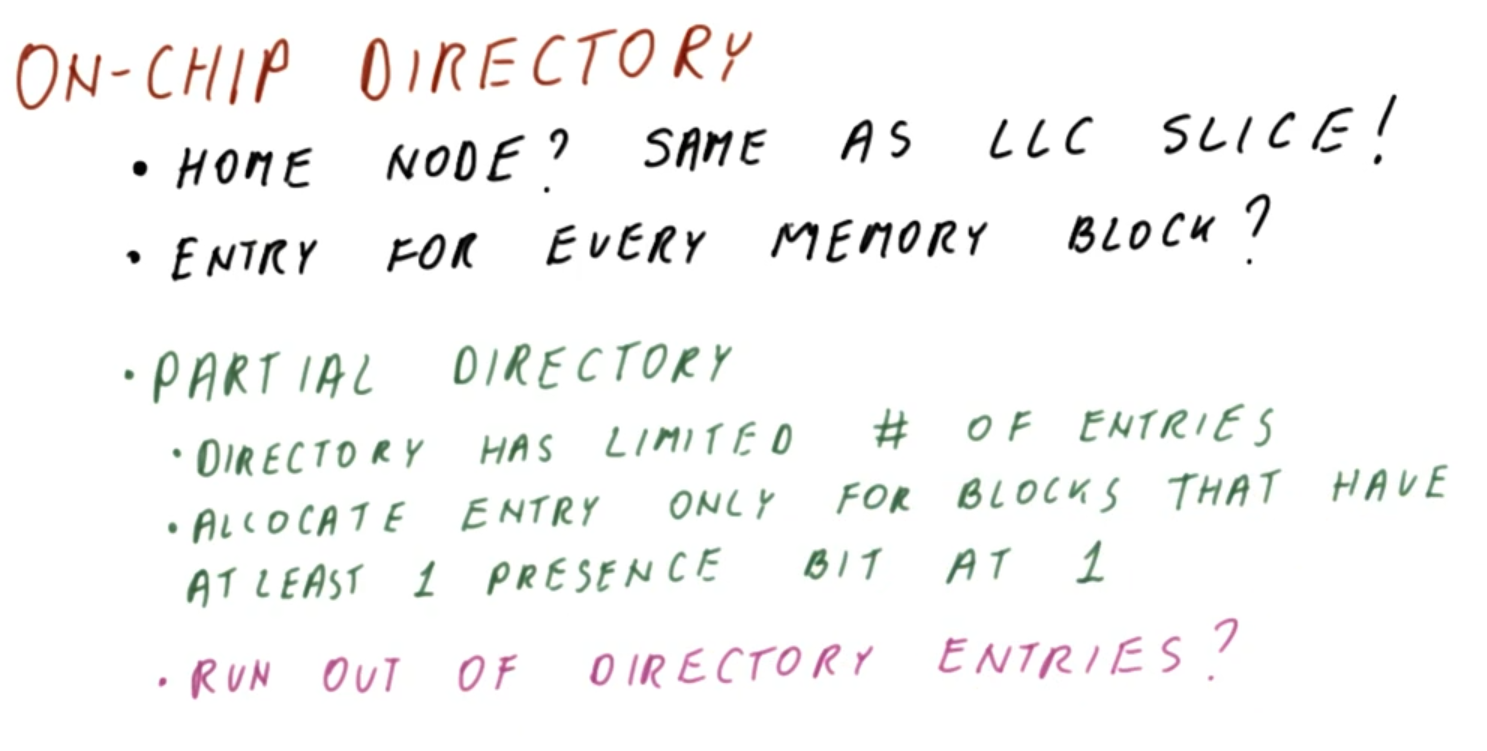 ON-CHIP DIRECTORY
• HOME NODE? SAME AS LLC SLICE!
• ENTRY FOR EVERY MEMORY BLOCK?
• PARTIAL DIRECTORY
• DIRECTORY HAS LIMITED # OF ENTRIES
• ALLOCATE ENTRY ONLY FOR BLOCKS THAT HAVE
AT LEAST 1 PRESENCE BIT AT 1
• RUN OUT OF DIRECTORY ENTRIES?